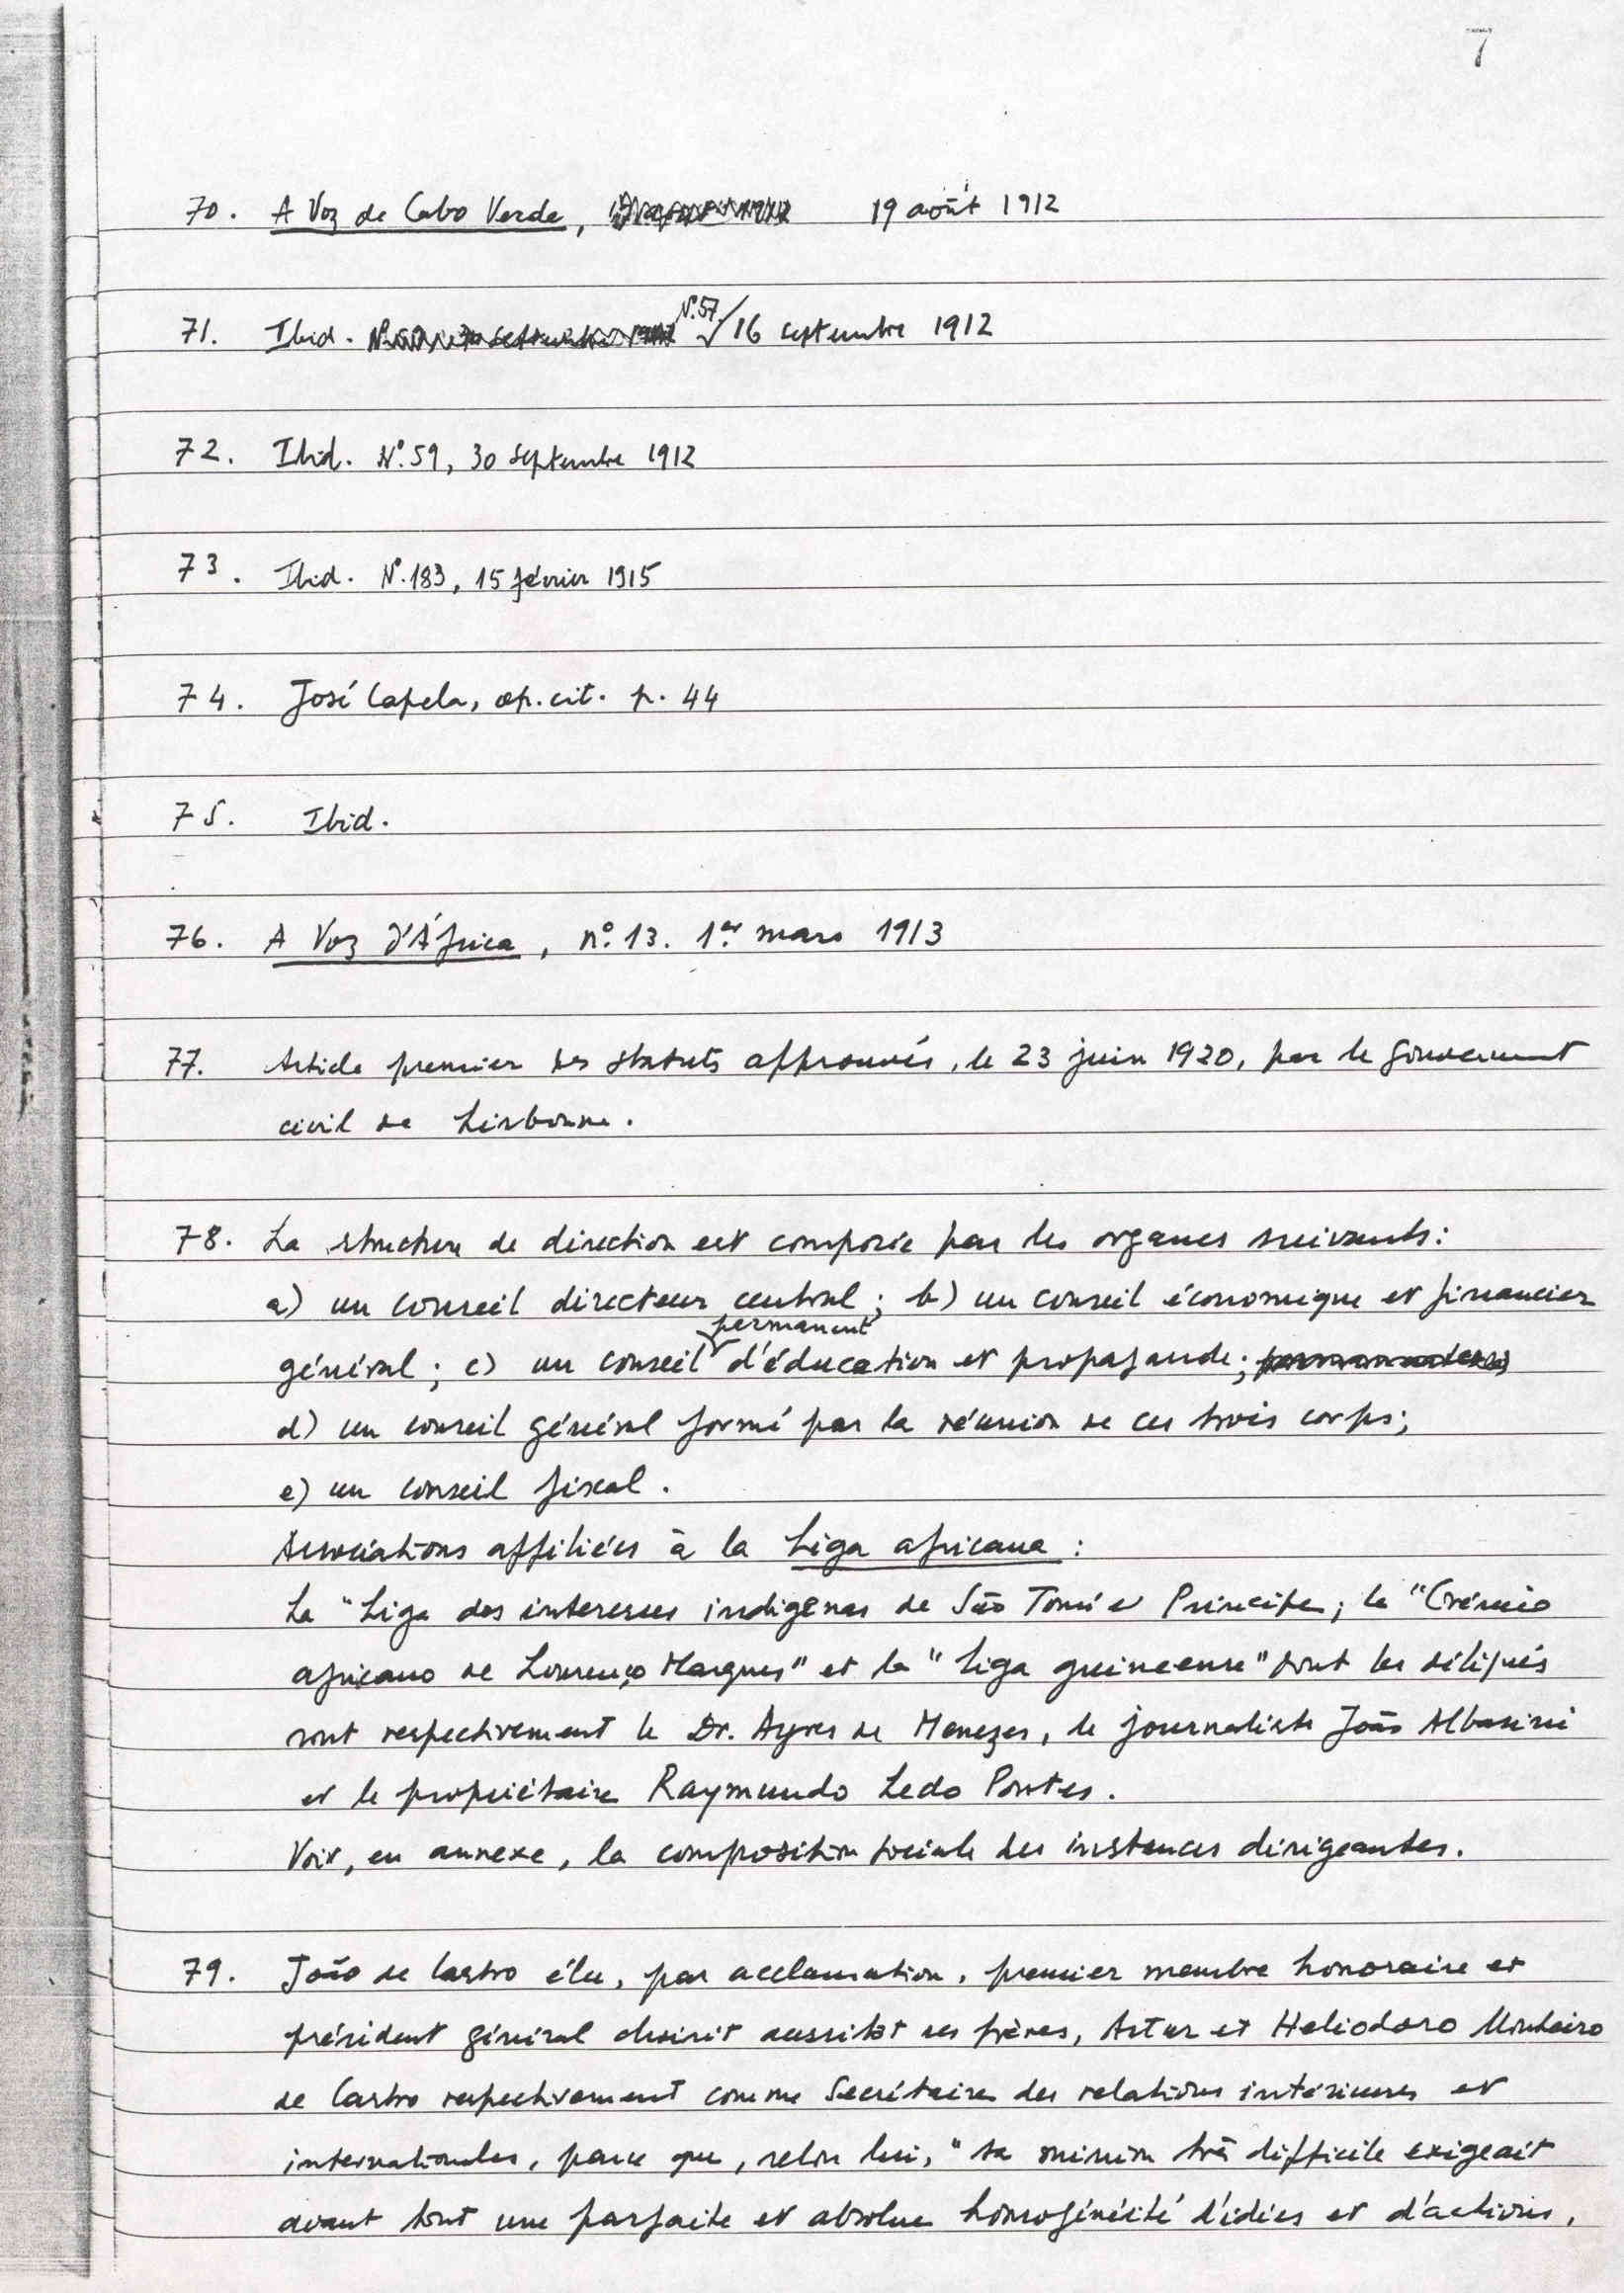 7
70. A Voz de Cabo Verde, 19 août 1912
71. Ibid. N°.57, 16 septembre 1912
72. Ibid. N°.59, 30 septembre 1912
73. Ibid. N°.183, 15 février 1915
74. José Capela, op. cit. p. 44
75. Ibid.
76. A Voz d'África, n°.13. 1er mars 1913
77. Article premier des statuts approuvés, le 23 juin 1920, par le gouvernement
civil de Lisbonne.
78. La structure de direction est composée par les organes suivants:
a) un conseil directeur central; b) un conseil économique et financier
général; c) un conseil permanent d'éducation et propagande;
d) un conseil général formé par la réunion de ces trois corps;
e) un conseil fiscal.
Associations affiliées à la Liga africana:
La "Liga dos interesses indigenas de São Tomé e Principe; le "Grémio
africano de Lourenço Marques" et la "Liga guineense" dont les délégués
sont respectivement le Dr. Ayres de Menezes, le journaliste João Albasini
et le propriétaire Raymundo Ledo Pontes.
Voir, en annexe, la composition sociale des instances dirigeantes.
79. João de Castro élu, par acclamation, premier membre honoraire et
président général choisit aussitôt ses frères, Artur et Heliodoro Monteiro
de Castro respectivement comme Secrétaires des relations intérieures et
internationales, parce que, selon lui, "sa mission très difficile exigeait
avant tout une parfaite et absolue homogénéité d'idées et d'actions,